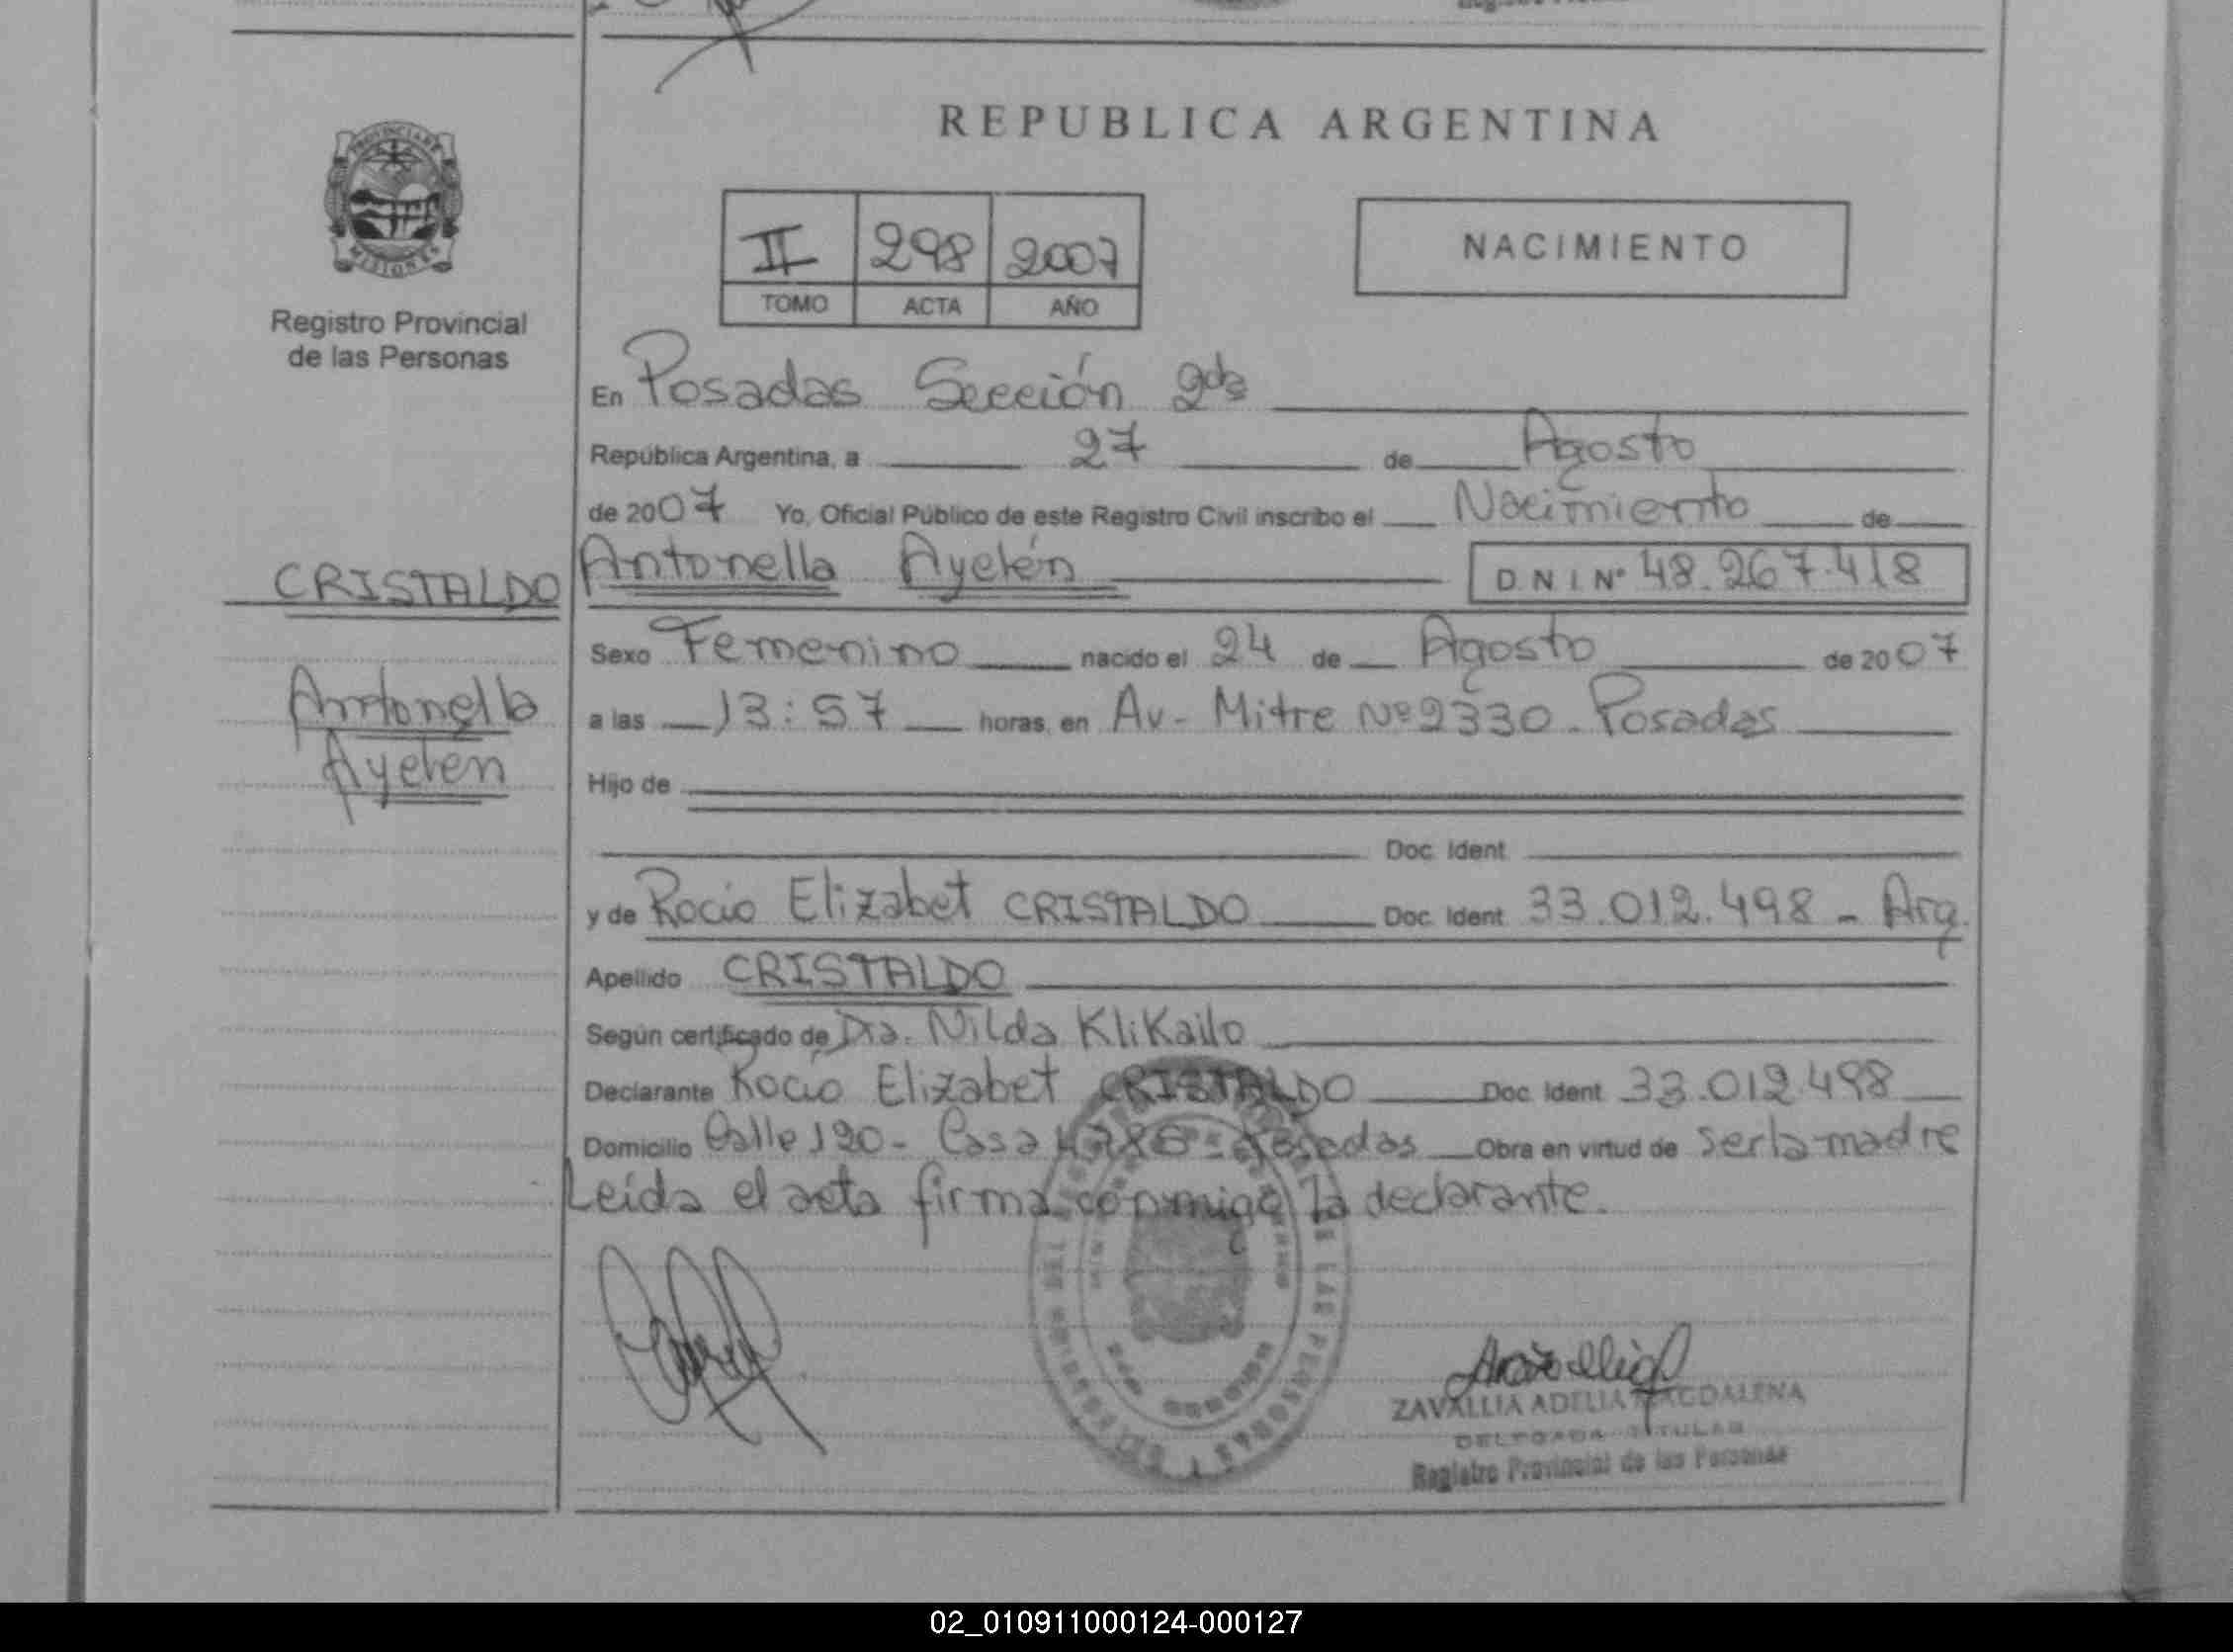 REPUBLICA ARGENTINA
PROVINCIA DE
MISIONES
Registro Provincial
de las Personas
II 298 2007
TOMO ACTA AÑO
NACIMIENTO
En Posadas Sección 2da
República Argentina, a 27 de Agosto
de 2007 Yo, Oficial Público de este Registro Civil inscribo el Nacimiento de
CRISTALDO Antonella Ayelén D.N.I. Nº 48.267.418
Sexo Femenino nacido el 24 de Agosto de 2007
Antonella
Ayelen
a las 13:57 horas, en Av- Mitre Nº 2330 - Posadas
Hijo de
Doc. Ident.
y de Rocio Elizabet CRISTALDO Doc. Ident. 33.012.498 - Arg.
Apellido CRISTALDO
Según certificado de Dra. Nilda KliKailo
Declarante Rocio Elizabet CRISTALDO Doc. Ident. 33.012.498
Domicilio Calle 120 - Casa Posadas Obra en virtud de ser la madre
Leída el acta firma conmigo la declarante.
DE LAS PERSONAS
ZAVALLIA ADELIA MAGDALENA
DELEGADA TITULAR
Registro Provincial de las Personas
02_010911000124-000127